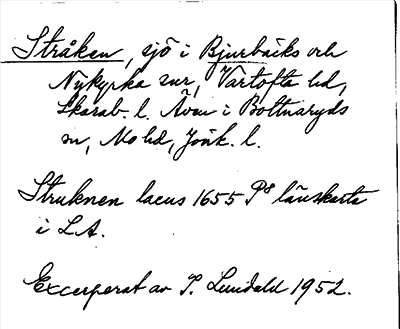 Stråken, sjö i Bjurbäcks och
Nykyrka snr, Vartofta hd,
Skarab. l. Även i Bottnaryds
sn, Mo hd, Jönk. l.
Struknen lacus 1655 länskarta
i L.A.
Excerperat av S. Lundahl 1952.